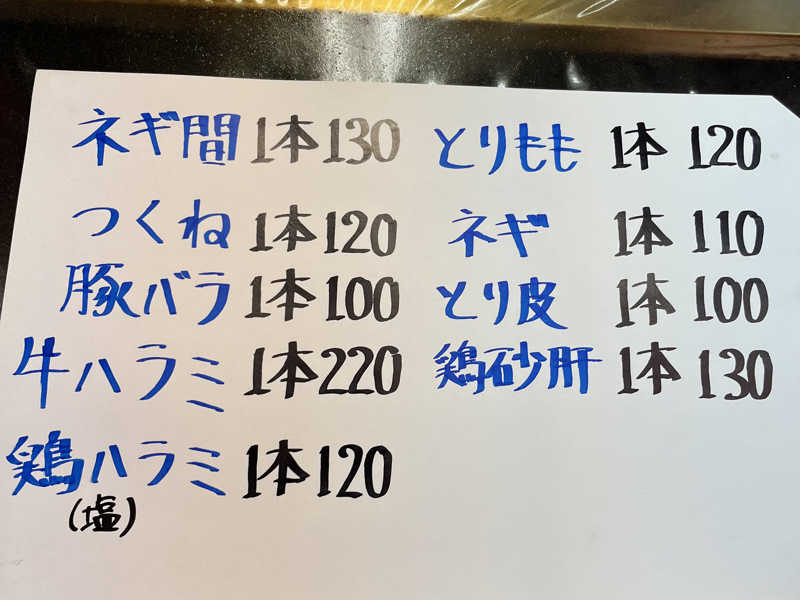 ネギ間 1本 130
つくね 1本 120
豚バラ 1本 100
牛ハラミ 1本 220
鶏ハラミ 1本 120
(塩)
とりもも 1本 120
ネギ 1本 110
とり皮 1本 100
鶏砂肝 1本 130